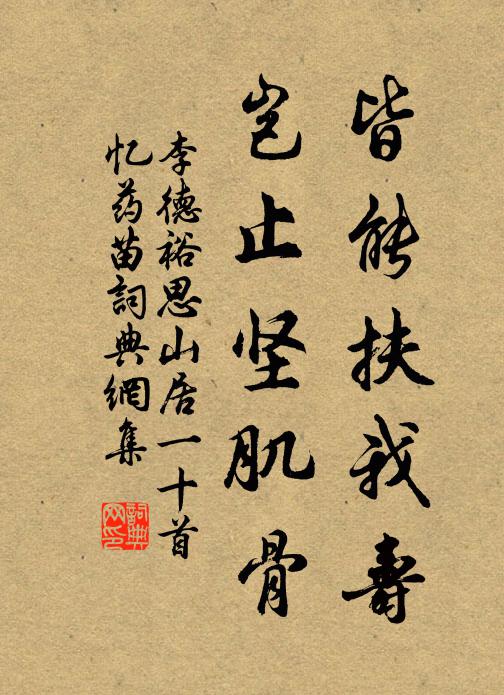 皆能扶我壽
岂止坚肌骨
李德裕思山居一十首
忆药苗詞典網集
詞典
网印